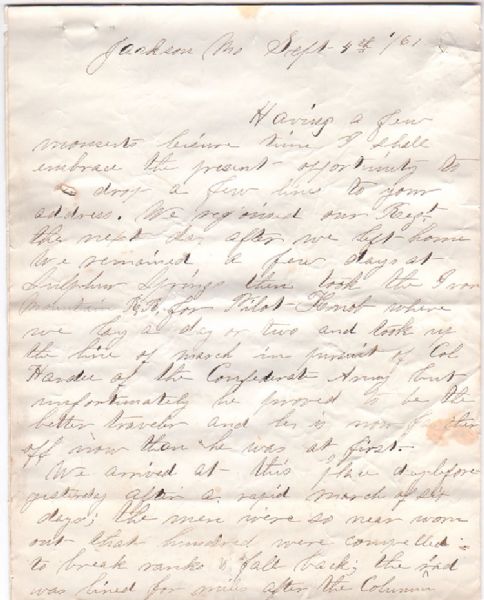 Jackson Mo Sept 4th /61
Having a few
moments leisure time I shall
embrace the present opportunity to
drop a few lines to your
address. We rejoined our Regt
the next day after we left home
We remained a few days at
Sulphur Springs then took the Iron
Mountain R.R. for Pilot-Knob where
we lay a day or two and took up
the line of march in pursuit of Col
Hardee of the Confederate Army but
unfortunately he proved to be the
better traveler and he is now farther
off now than he was at first.
We arrived at this place day before
yesterday after a rapid march of six
days; the men were so near worn
out that hundred were compelled
to break ranks & fall back; the road
was lined for miles after the Column